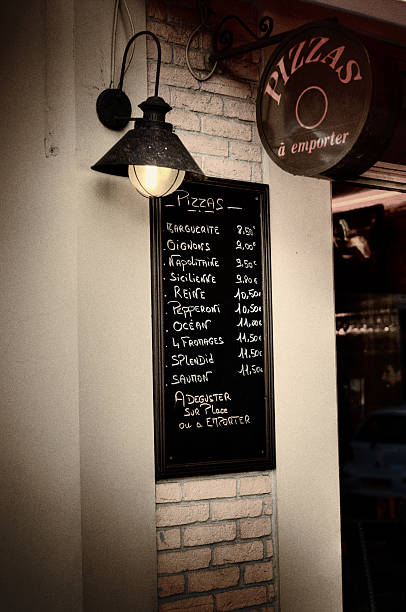 PIZZAS
à emporter
PIZZAS
MARGUERITE 8.50€
OIGNONS 9,00€
NAPOLITAINE 9,50€
SICILIENNE 9.80€
REINE 10,50€
PEPPERONI 10,50€
OCÉAN 11,50€
4 FROMAGES 11,50€
SPLENDID 11,50€
SAUMON 11,50€
A DEGUSTER
SUR PLACE
OU A EMPORTER